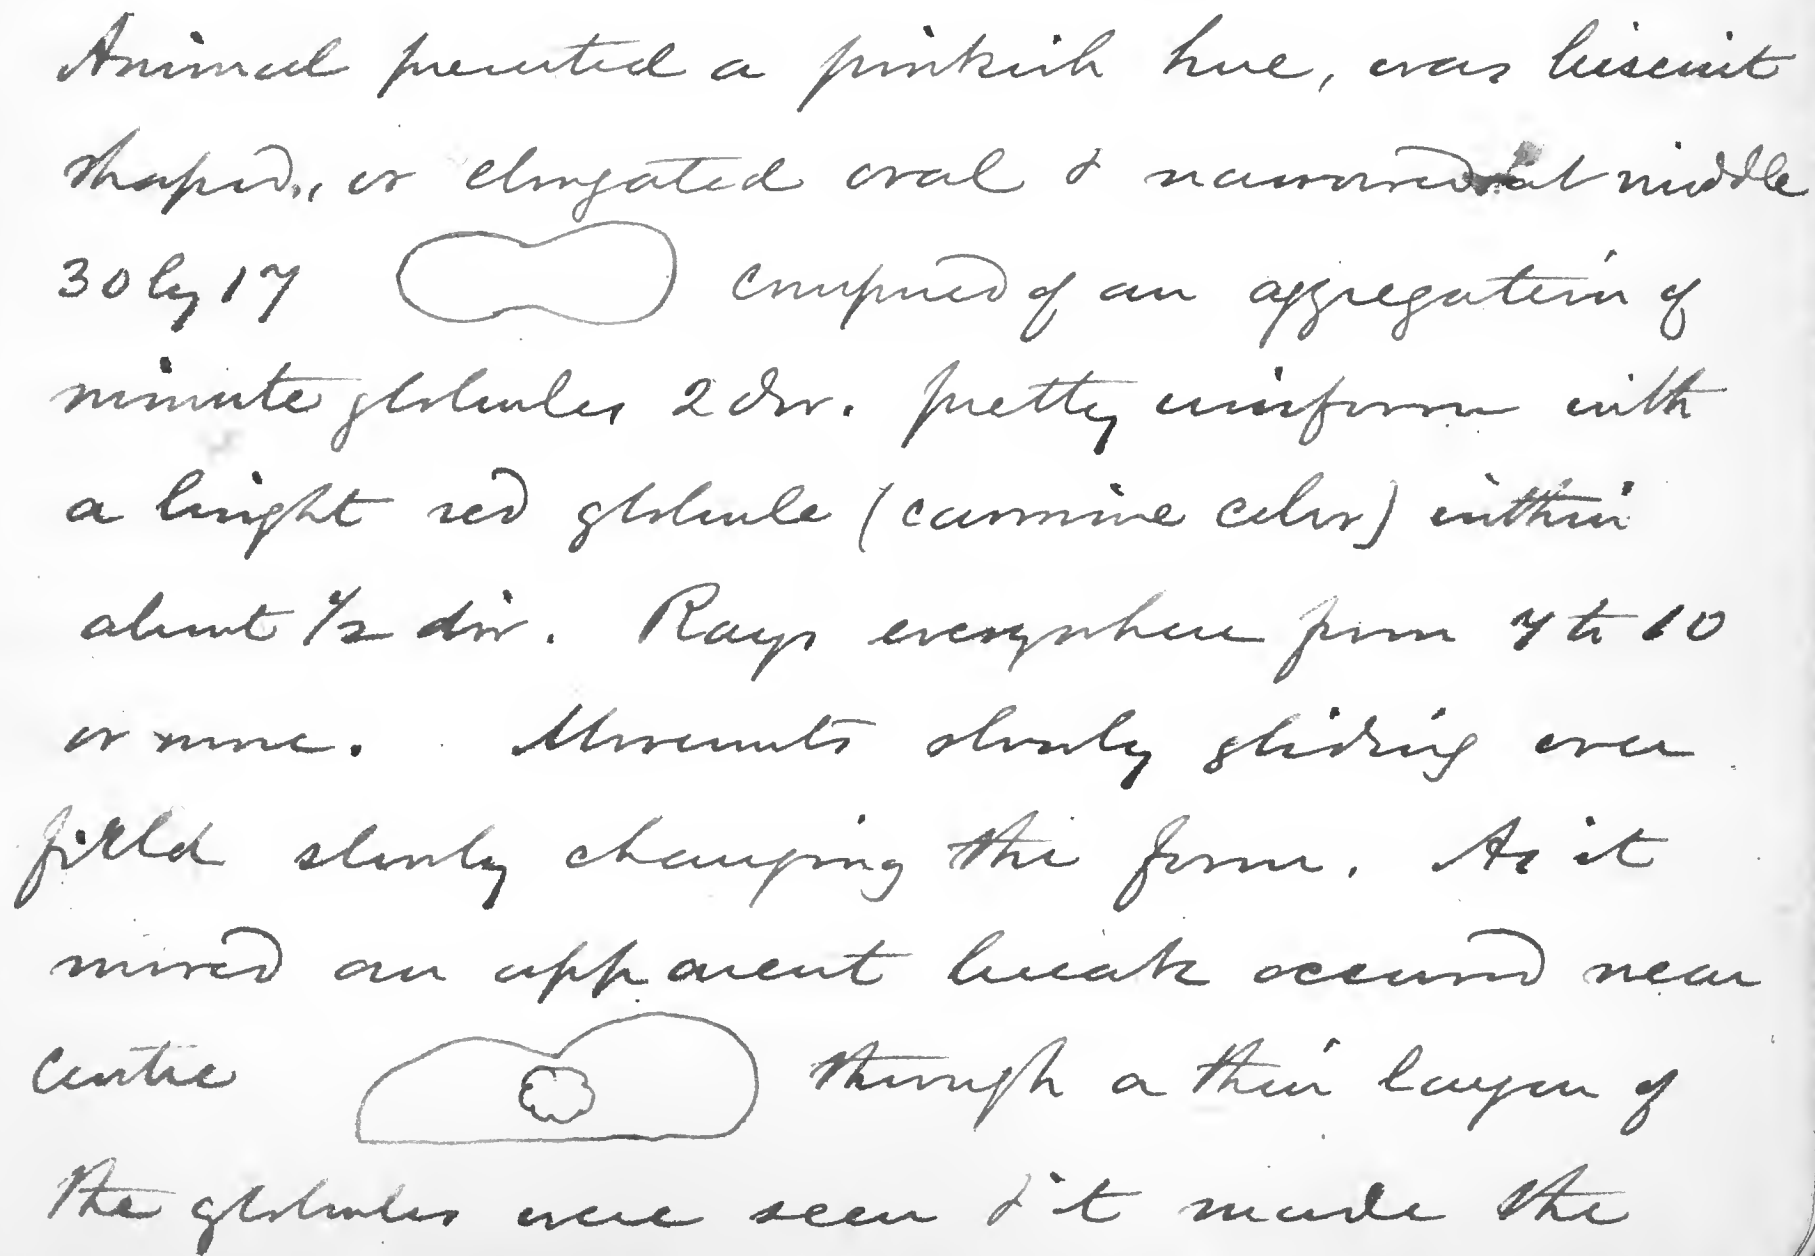 Animal presented a pinkish hue, was biscuit
shaped, or elongated oval & narrowed at middle
30 by 17 composed of an aggregation of
minute globules 2 div. pretty uniform with
a bright red globule (carmine color) within
about 1/2 div. Rays everywhere from 7 to 10
or more. Movements slowly gliding over
field slowly changing the form. As it
moved an apparent break occurred near
centre through a thin layer of
the globules were seen & it made the